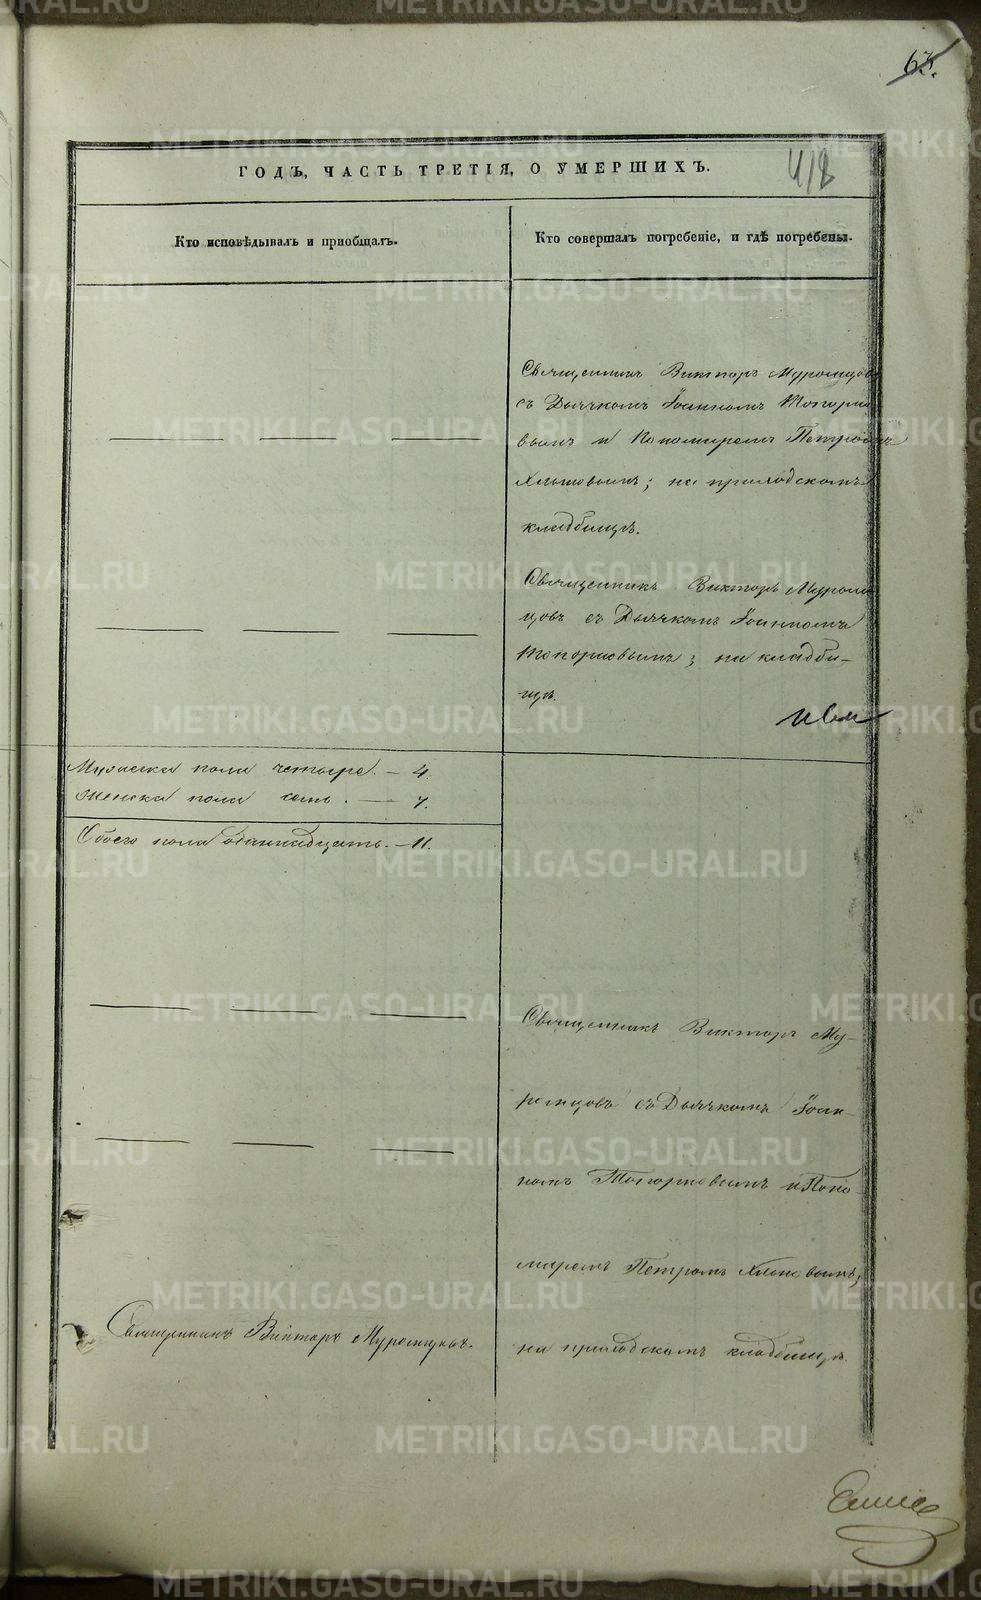 63.
418
ГОДЪ, ЧАСТЬ ТРЕТІЯ, О УМЕРШИХЪ.
Кто исповѣдывалъ и пріобщалъ.
Кто совершалъ погребеніе, и гдѣ погребены.
Священникъ Викторъ Муромцовъ
съ Дьячкомъ Іоанномъ Топорко
вымъ и Пономаремъ Петромъ
Хлыновымъ; на приходскомъ
кладбищѣ.
Священникъ Викторъ Муром
цовъ съ Дьячкомъ Іоанномъ
Топорковымъ; на кладби-
щѣ.
Мужеска пола четыре. — 4.
Женска пола семь. — 7.
Обоего пола одиннадцать. — 11.
Священникъ Викторъ Му-
ромцовъ съ Дьячкомъ Іоан-
номъ Топорковымъ и Поно-
маремъ Петромъ Хлыновымъ;
на приходскомъ кладбищѣ.
Священникъ Викторъ Муромцовъ.
METRIKI.GASO-URAL.RU